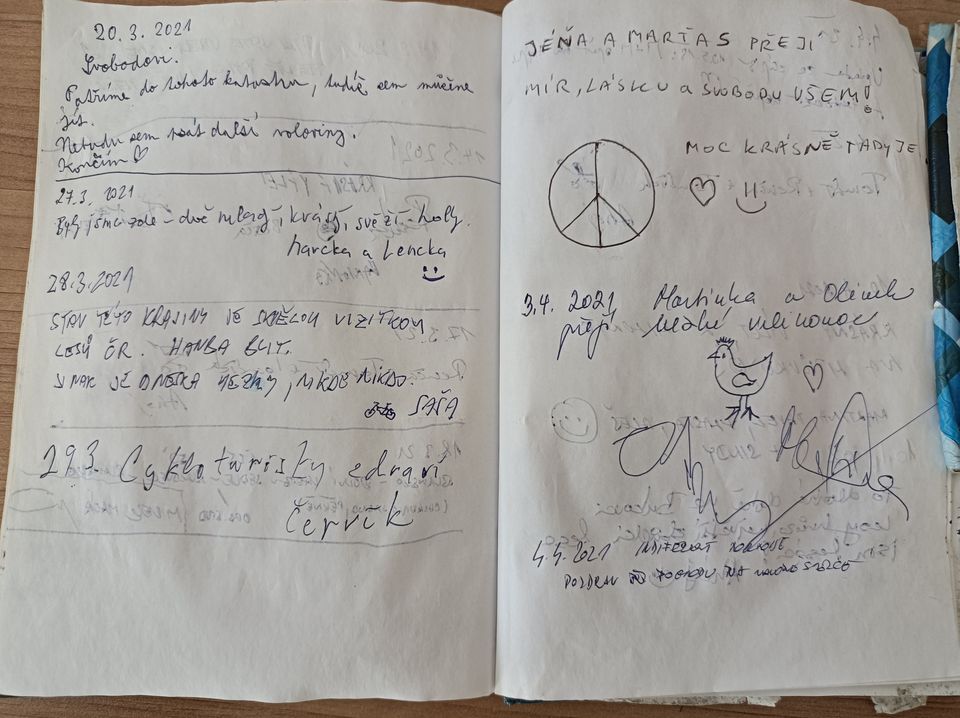 20. 3. 2021
Svobodovi.
Patříme do tohoto katastru, tudíž sem můžeme
jít.
Nebudu sem psát další voloviny.
Končím
27.3. 2021
Byly jsme zde – dvě mladý, krásný, svěží – holy.
harčka a Lencka
28.3.2021
STAV TÉTO KRAJINY JE SKVĚLOU VIZITKOU
LESŮ ČR. HANBA BLIT.
JINAK JE DNESKA HEZKY, NIKDE NIKDO.
SAŠA
29.3. Cyklo turisty zdraví
Červík
JÉŇA A MARŤAS PŘEJÍ
MÍR, LÁSKU A SVOBODU VŠEM!
MOC KRÁSNĚ TADY JE
3.4. 2021 Martinka a
přejí hezké velikonoce
4.4.2021
POZDRAV